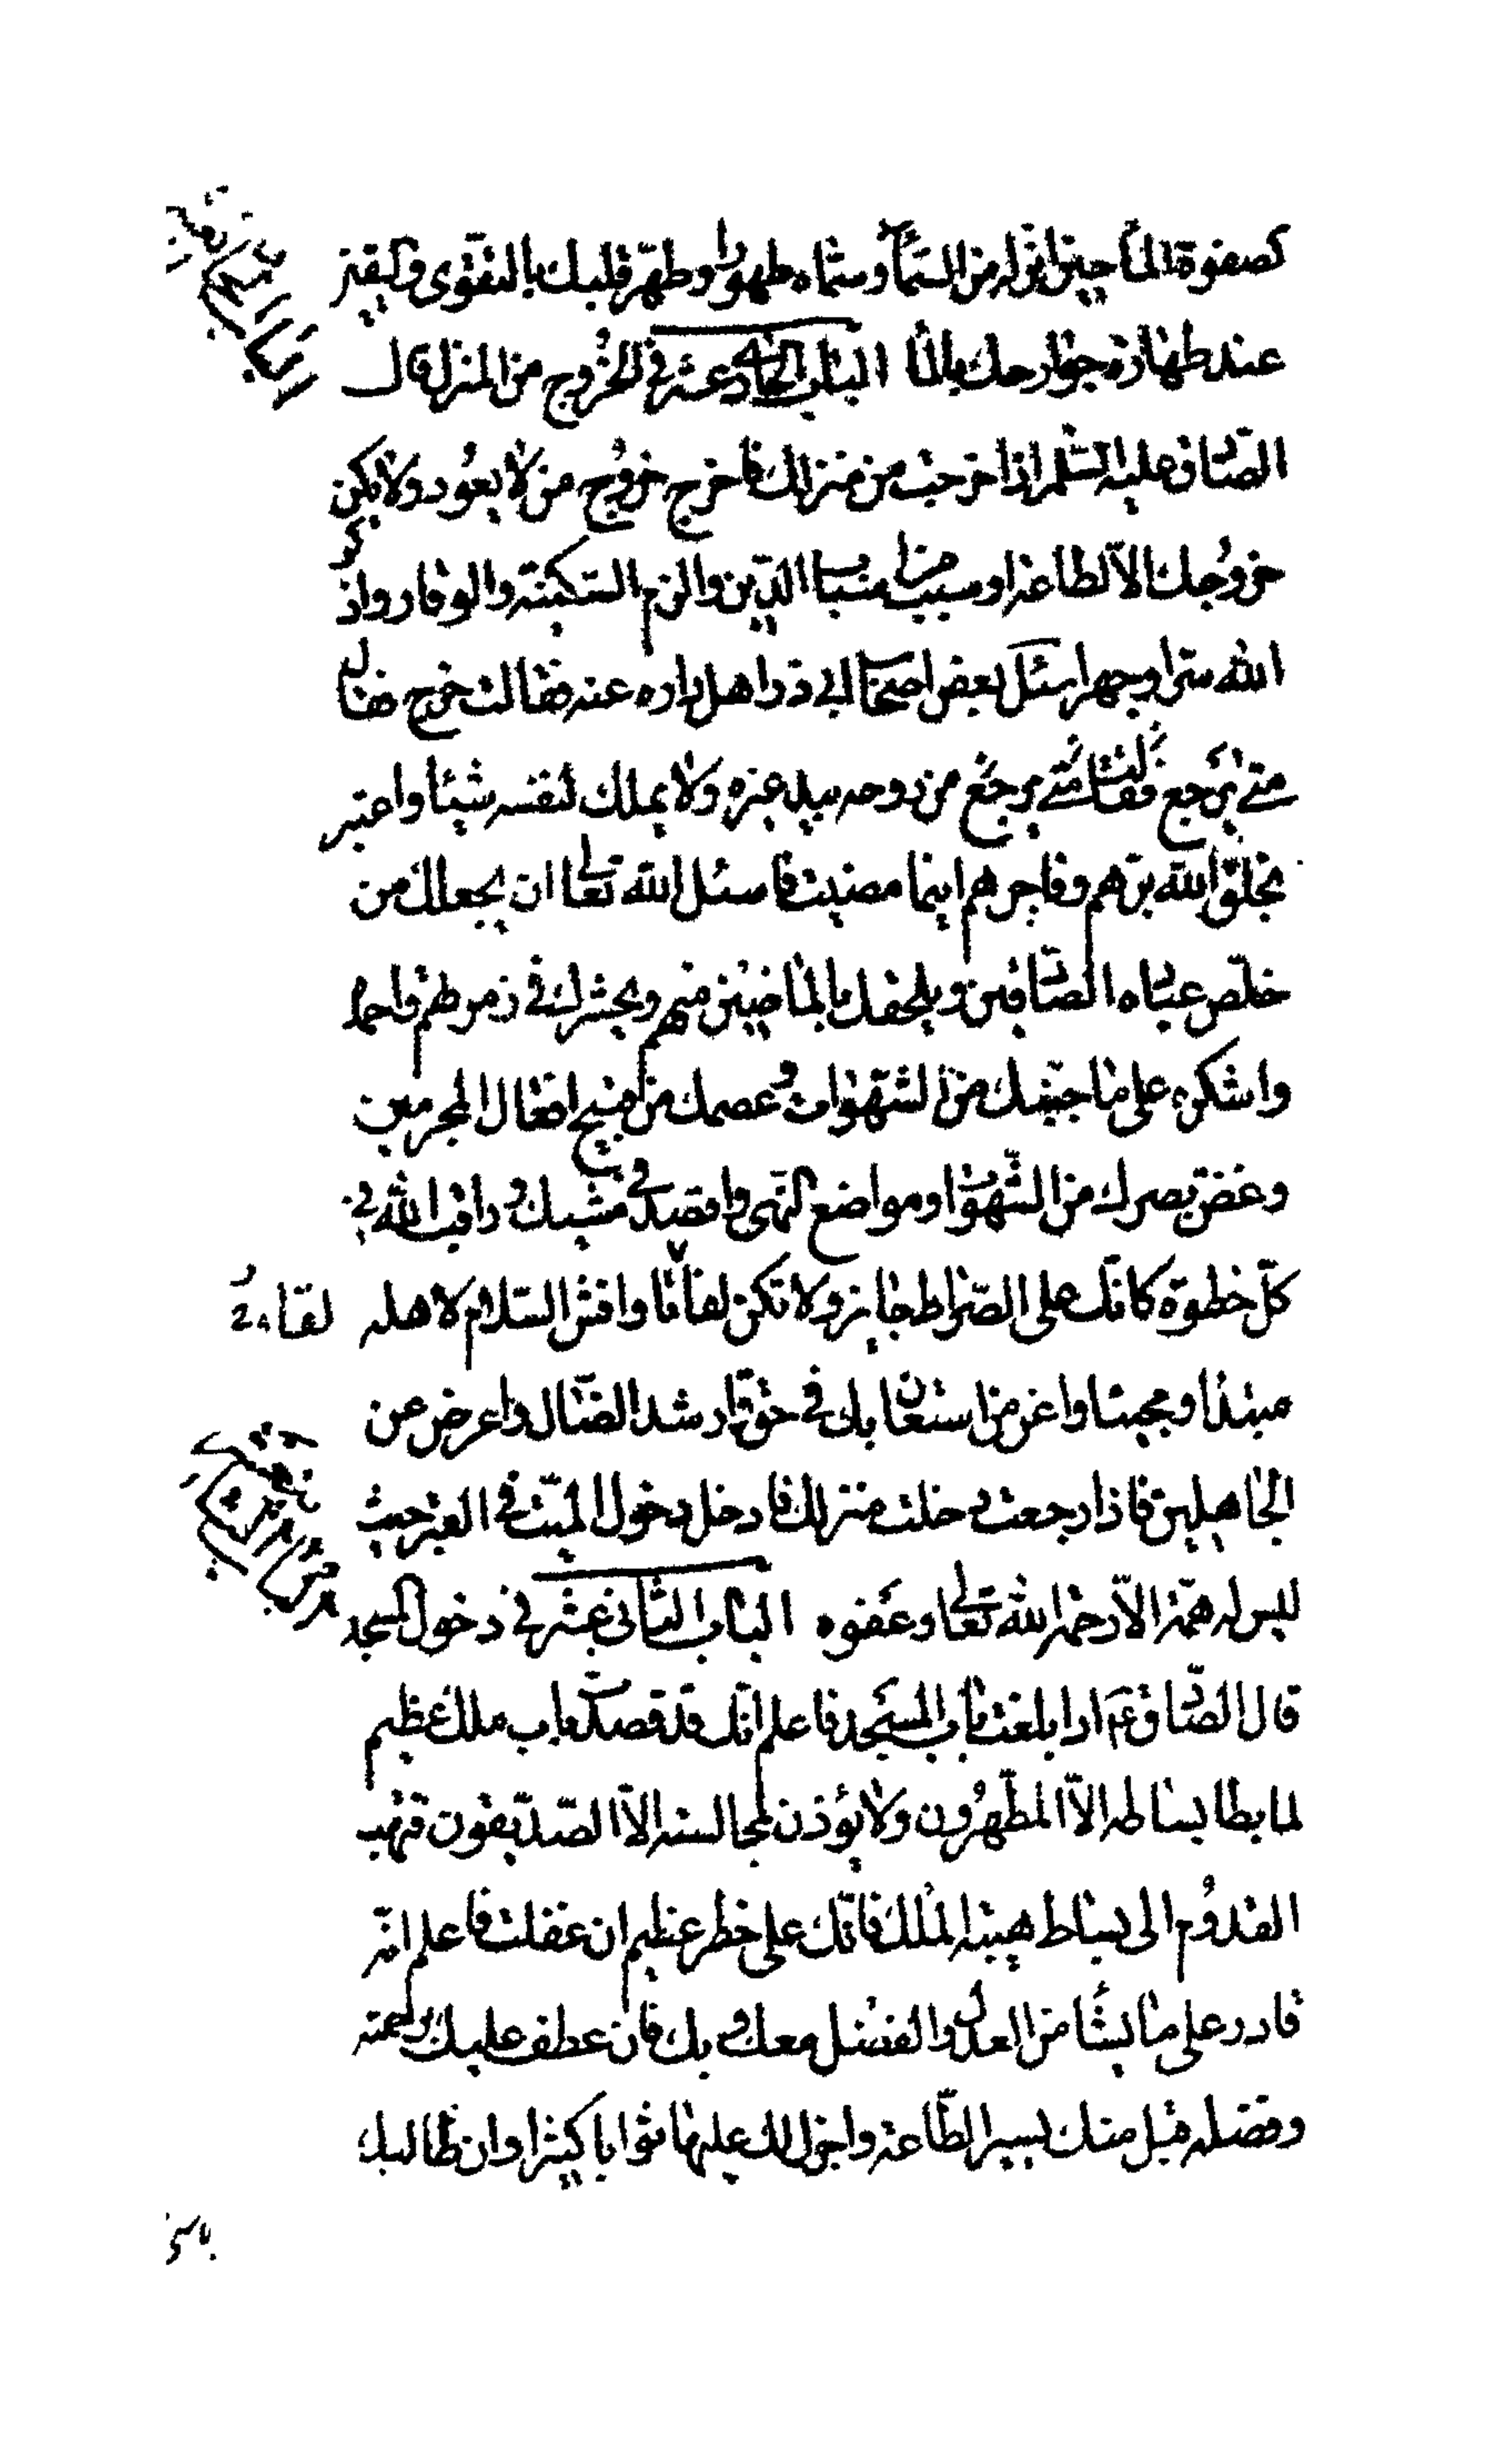 كصفوة الماء حين انزله من السماء وسماه طهورا وطهر قلبك بالتقوى واليقين
عند طهارة جوارحك بالماء الباب الحادي عشر في الخروج من المنزل قال
الصادق عليه السلم اذا خرجت من منزلك فاخرج خروج من لا يعود ولا يكن
خروجك الا لطاعة او سبب من اسباب الدين والزم السكينة والوقار واذكر
الله سرا وجهرا سئل بعض اصحاب ابي ذر اهل داره عنه فقالت خرج فقال
متى يرجع فقالت متى يرجع من روحه بيد غيره ولا يملك لنفسه شيئا واعتبر
بخلق الله برهم وفاجرهم اينما مضيت فاسئل الله تعالى ان يجعلك من
خلص عباده الصادقين ويلحقك بالماضين منهم ويحشرك في زمرتهم واحمد
واشكره على ما جنبك من الشهوات وعصمك من قبيح افعال المجرمين
وغض بصرك من الشهوات ومواضع النهى واقصد في مشيك وراقب الله في
كل خطوة كانك على الصراط جايز ولا تكن لفاتا وافش السلام لاهله
مبتدا ومجيبا واعن من استعان بك في حق وارشد الضال واعرض عن
الجاهلين فاذا رجعت ودخلت منزلك فادخل دخول الميت في القبر حيث
ليس له همة الا رحمة الله تعالى وعفوه الباب الثاني عشر في دخول المسجد
قال الصادق ع اذا بلغت باب المسجد فاعلم انك قد قصدت باب ملك عظيم
لما يطا بساطه الا المطهرون ولا يؤذن لمجالسته الا الصديقون فهب
القدوم الى بساط هيبة الملك فانك على خطر عظيم ان غفلت فاعلم انه
قادر على ما يشاء من العدل والفضل معك وبك فان عطف عليك برحمته
وفضله قبل منك يسير الطاعة واجزل لك عليها ثوابا كثيرا وان طالبك